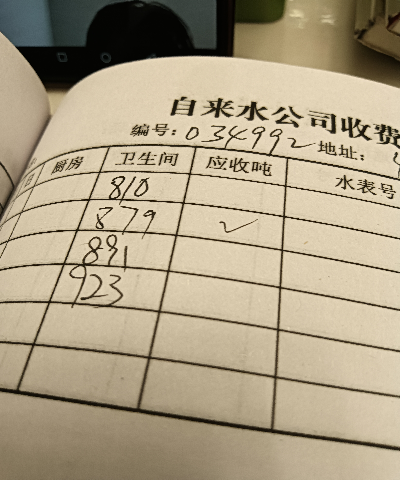 自来水公司收费
编号：034992 地址：
厨房 卫生间 应收吨 水表号
810
879 ✓
891
923